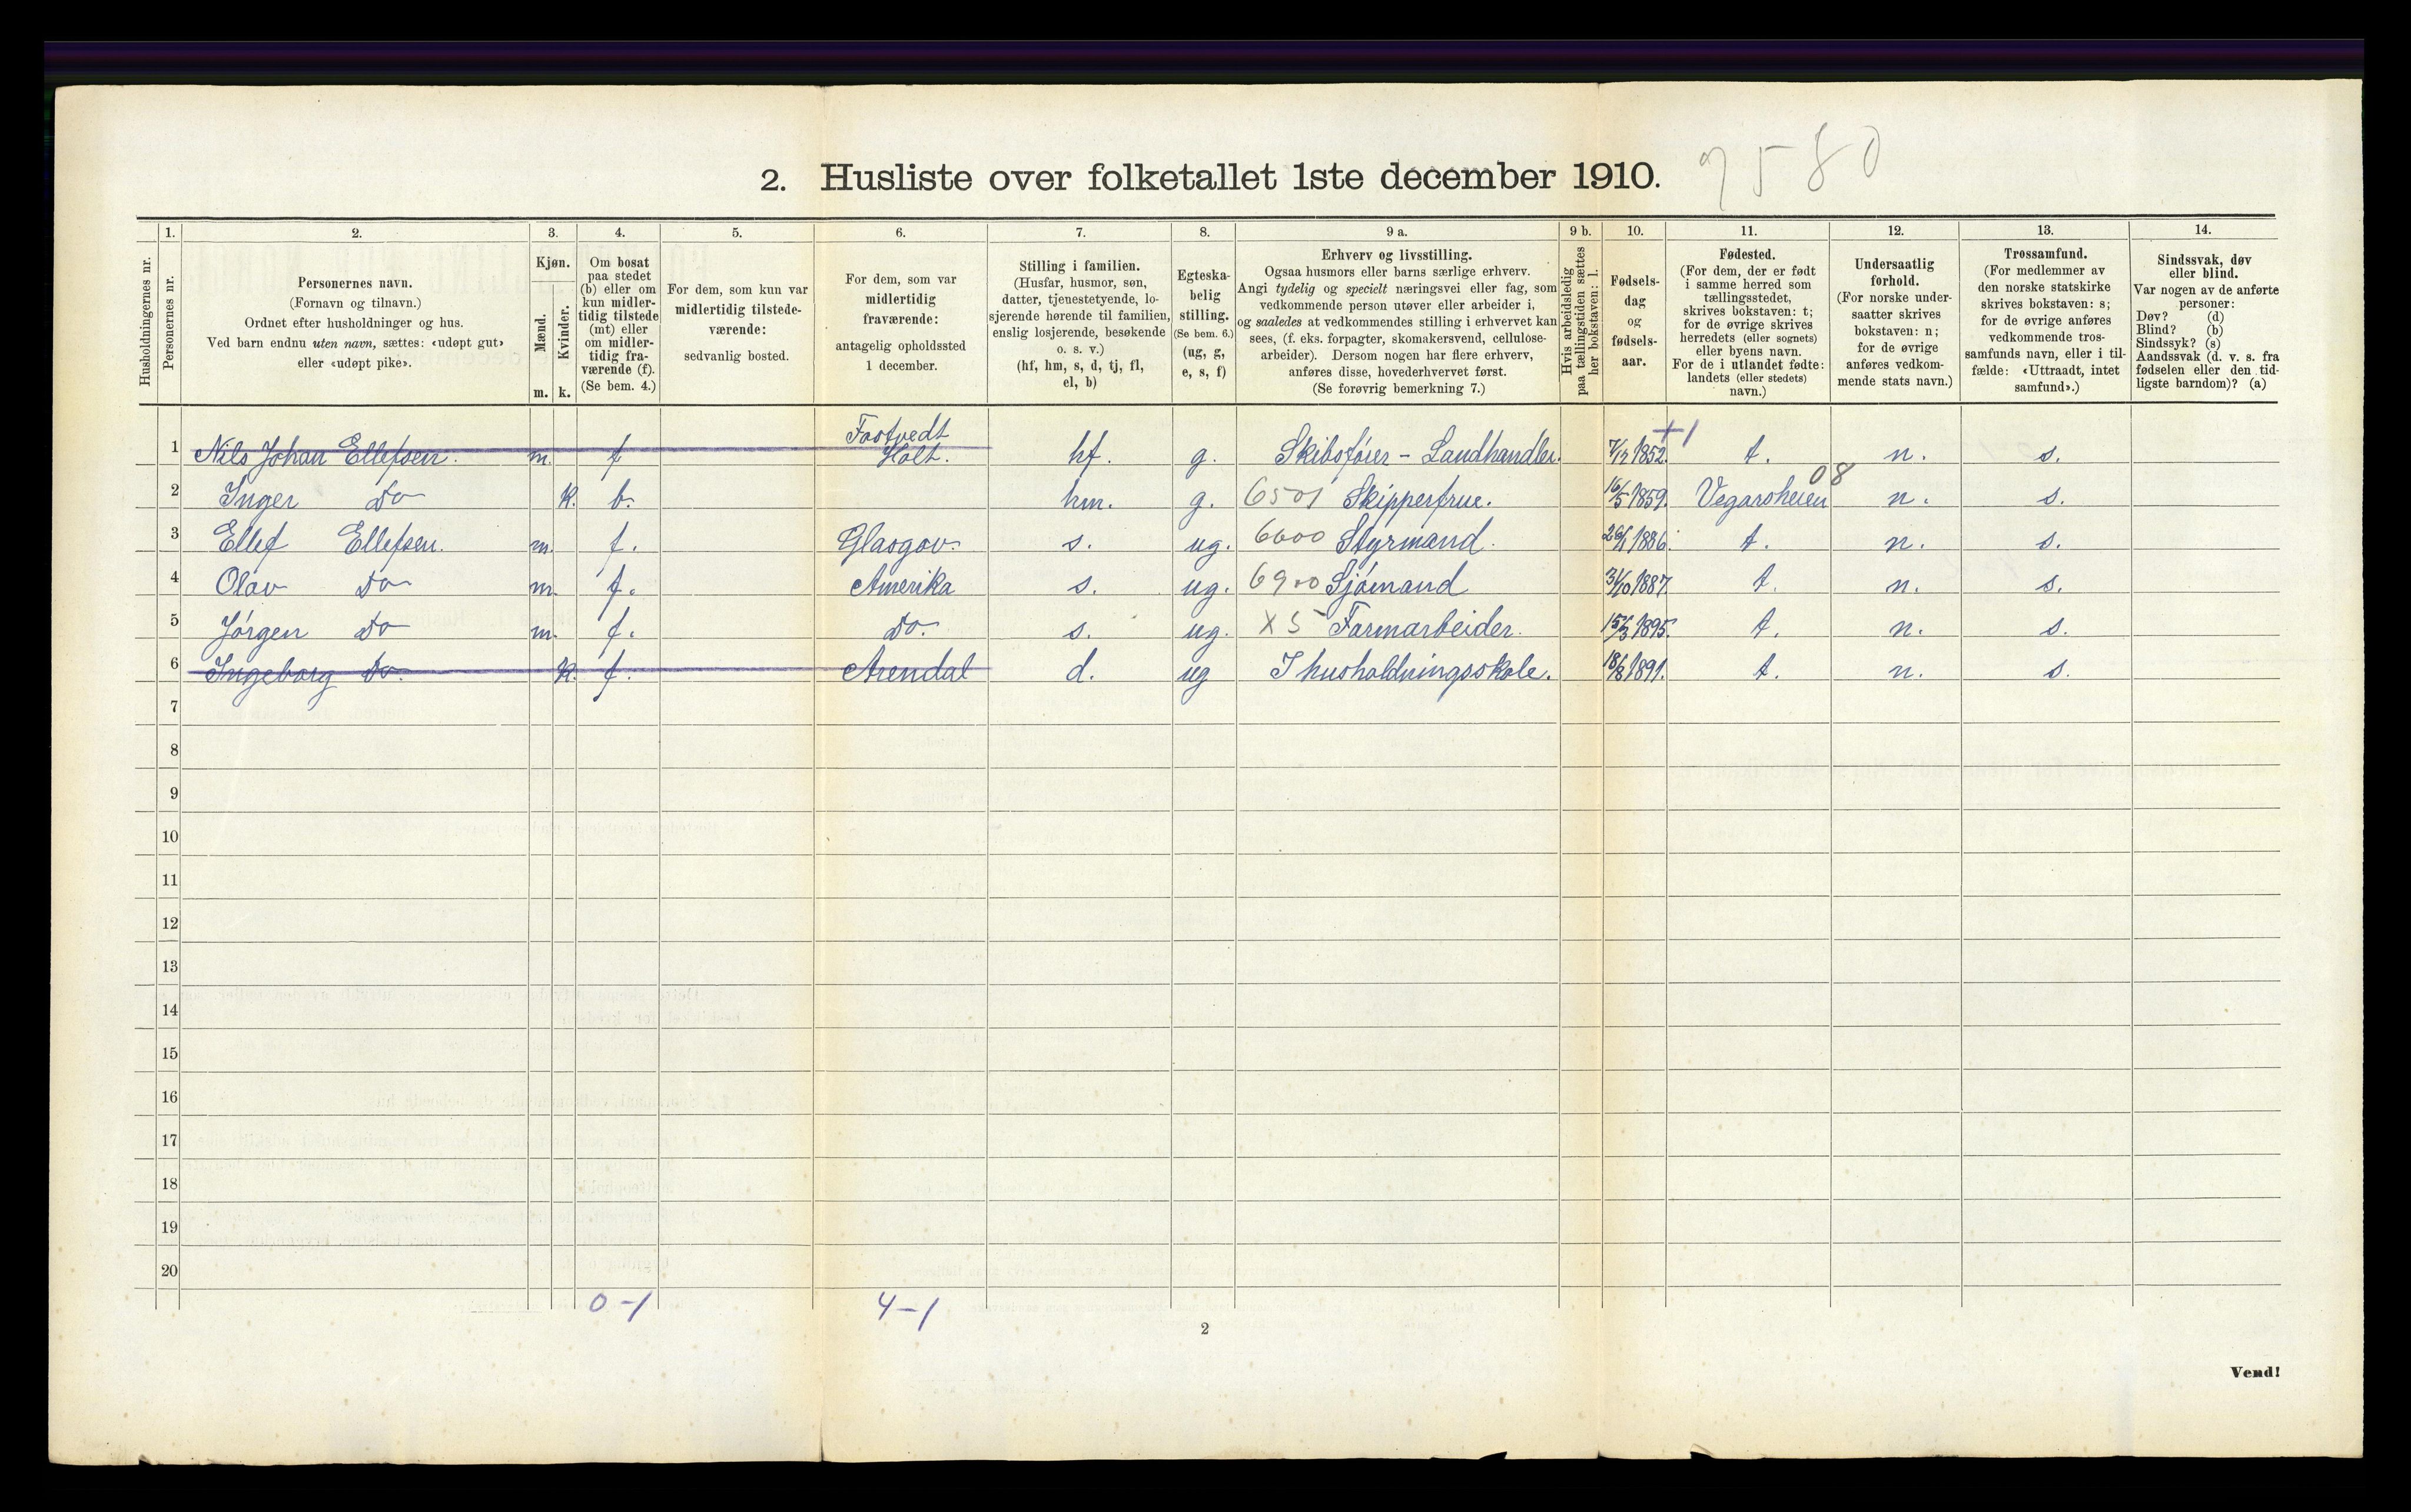 2. Husliste over folketallet 1ste december 1910. 7580
Husholdningernes nr.
1.
Personernes nr.
2.
Personernes navn.
(Fornavn og tilnavn.)
Ordnet efter husholdninger og hus.
Ved barn endnu uten navn, sættes: «udøpt gut»
eller «udøpt pike».
3.
Kjøn.
Mænd.
Kvinder.
m. k.
4.
Om bosat
paa stedet
(b) eller om
kun midler-
tidig tilstede
(mt) eller
om midler-
tidig fra-
værende (f).
(Se bem. 4.)
5.
For dem, som kun var
midlertidig tilstede-
værende:
sedvanlig bosted.
6.
For dem, som var
midlertidig
fraværende:
antagelig opholdssted
1 december.
7.
Stilling i familien.
(Husfar, husmor, søn,
datter, tjenestetyende, lo-
sjerende hørende til familien,
enslig losjerende, besøkende
o. s. v.)
(hf, hm, s, d, tj, fl,
el, b)
8.
Egteska-
belig
stilling.
(Se bem. 6.)
(ug, g,
e, s, f)
9 a.
Erhverv og livsstilling.
Ogsaa husmors eller barns særlige erhverv.
Angi tydelig og specielt næringsvei eller fag, som
vedkommende person utøver eller arbeider i,
og saaledes at vedkommendes stilling i erhvervet kan
sees, (f. eks. forpagter, skomakersvend, cellulose-
arbeider). Dersom nogen har flere erhverv,
anføres disse, hovederhvervet først.
(Se forøvrig bemerkning 7.)
9 b.
Hvis arbeidsledig
paa tællingstiden sættes
her bokstaven: l.
10.
Fødsels-
dag
og
fødsels-
aar.
11.
Fødested.
(For dem, der er født
i samme herred som
tællingsstedet,
skrives bokstaven: t;
for de øvrige skrives
herredets (eller sognets)
eller byens navn.
For de i utlandet fødte:
landets (eller stedets)
navn.)
12.
Undersaatlig
forhold.
(For norske under-
saatter skrives
bokstaven: n;
for de øvrige
anføres vedkom-
mende stats navn.)
13.
Trossamfund.
(For medlemmer av
den norske statskirke
skrives bokstaven: s;
for de øvrige anføres
vedkommende tros-
samfunds navn, eller i til-
fælde: «Uttraadt, intet
samfund».)
14.
Sindssvak, døv
eller blind.
Var nogen av de anførte
personer:
Døv? (d)
Blind? (b)
Sindssyk? (s)
Aandssvak (d. v. s. fra
fødselen eller den tid-
ligste barndom)? (a)
Fostvedt +1
1 Nils Johan Ellefsen. m. f Holt. hf. g. Skibsfører - Landhandler. 7/12 1852. t. n. s.
08
2 Inger Do k. b. hm. g. 6501 Skipperfrue. 16/5 1859. Vegarsheien n. s.
3 Ellef Ellefsen. m. f. Glasgov. s. ug. 6600 Styrmand. 26/1 1886. t. n. s.
4 Olav Do m. f. Amerika s. ug. 6900 Sjømand 31/10 1887. t. n. s.
5 Jørgen Do m. f. Do. s. ug. X5 Farmarbeider. 15/3 1895. t. n. s.
6 Ingeborg Do. k. f. Arendal d. ug I husholdningsskole. 18/8 1891. t. n. s.
7
8
9
10
11
12
13
14
15
16
17
18
19
20
0-1 4-1
2
Vend!